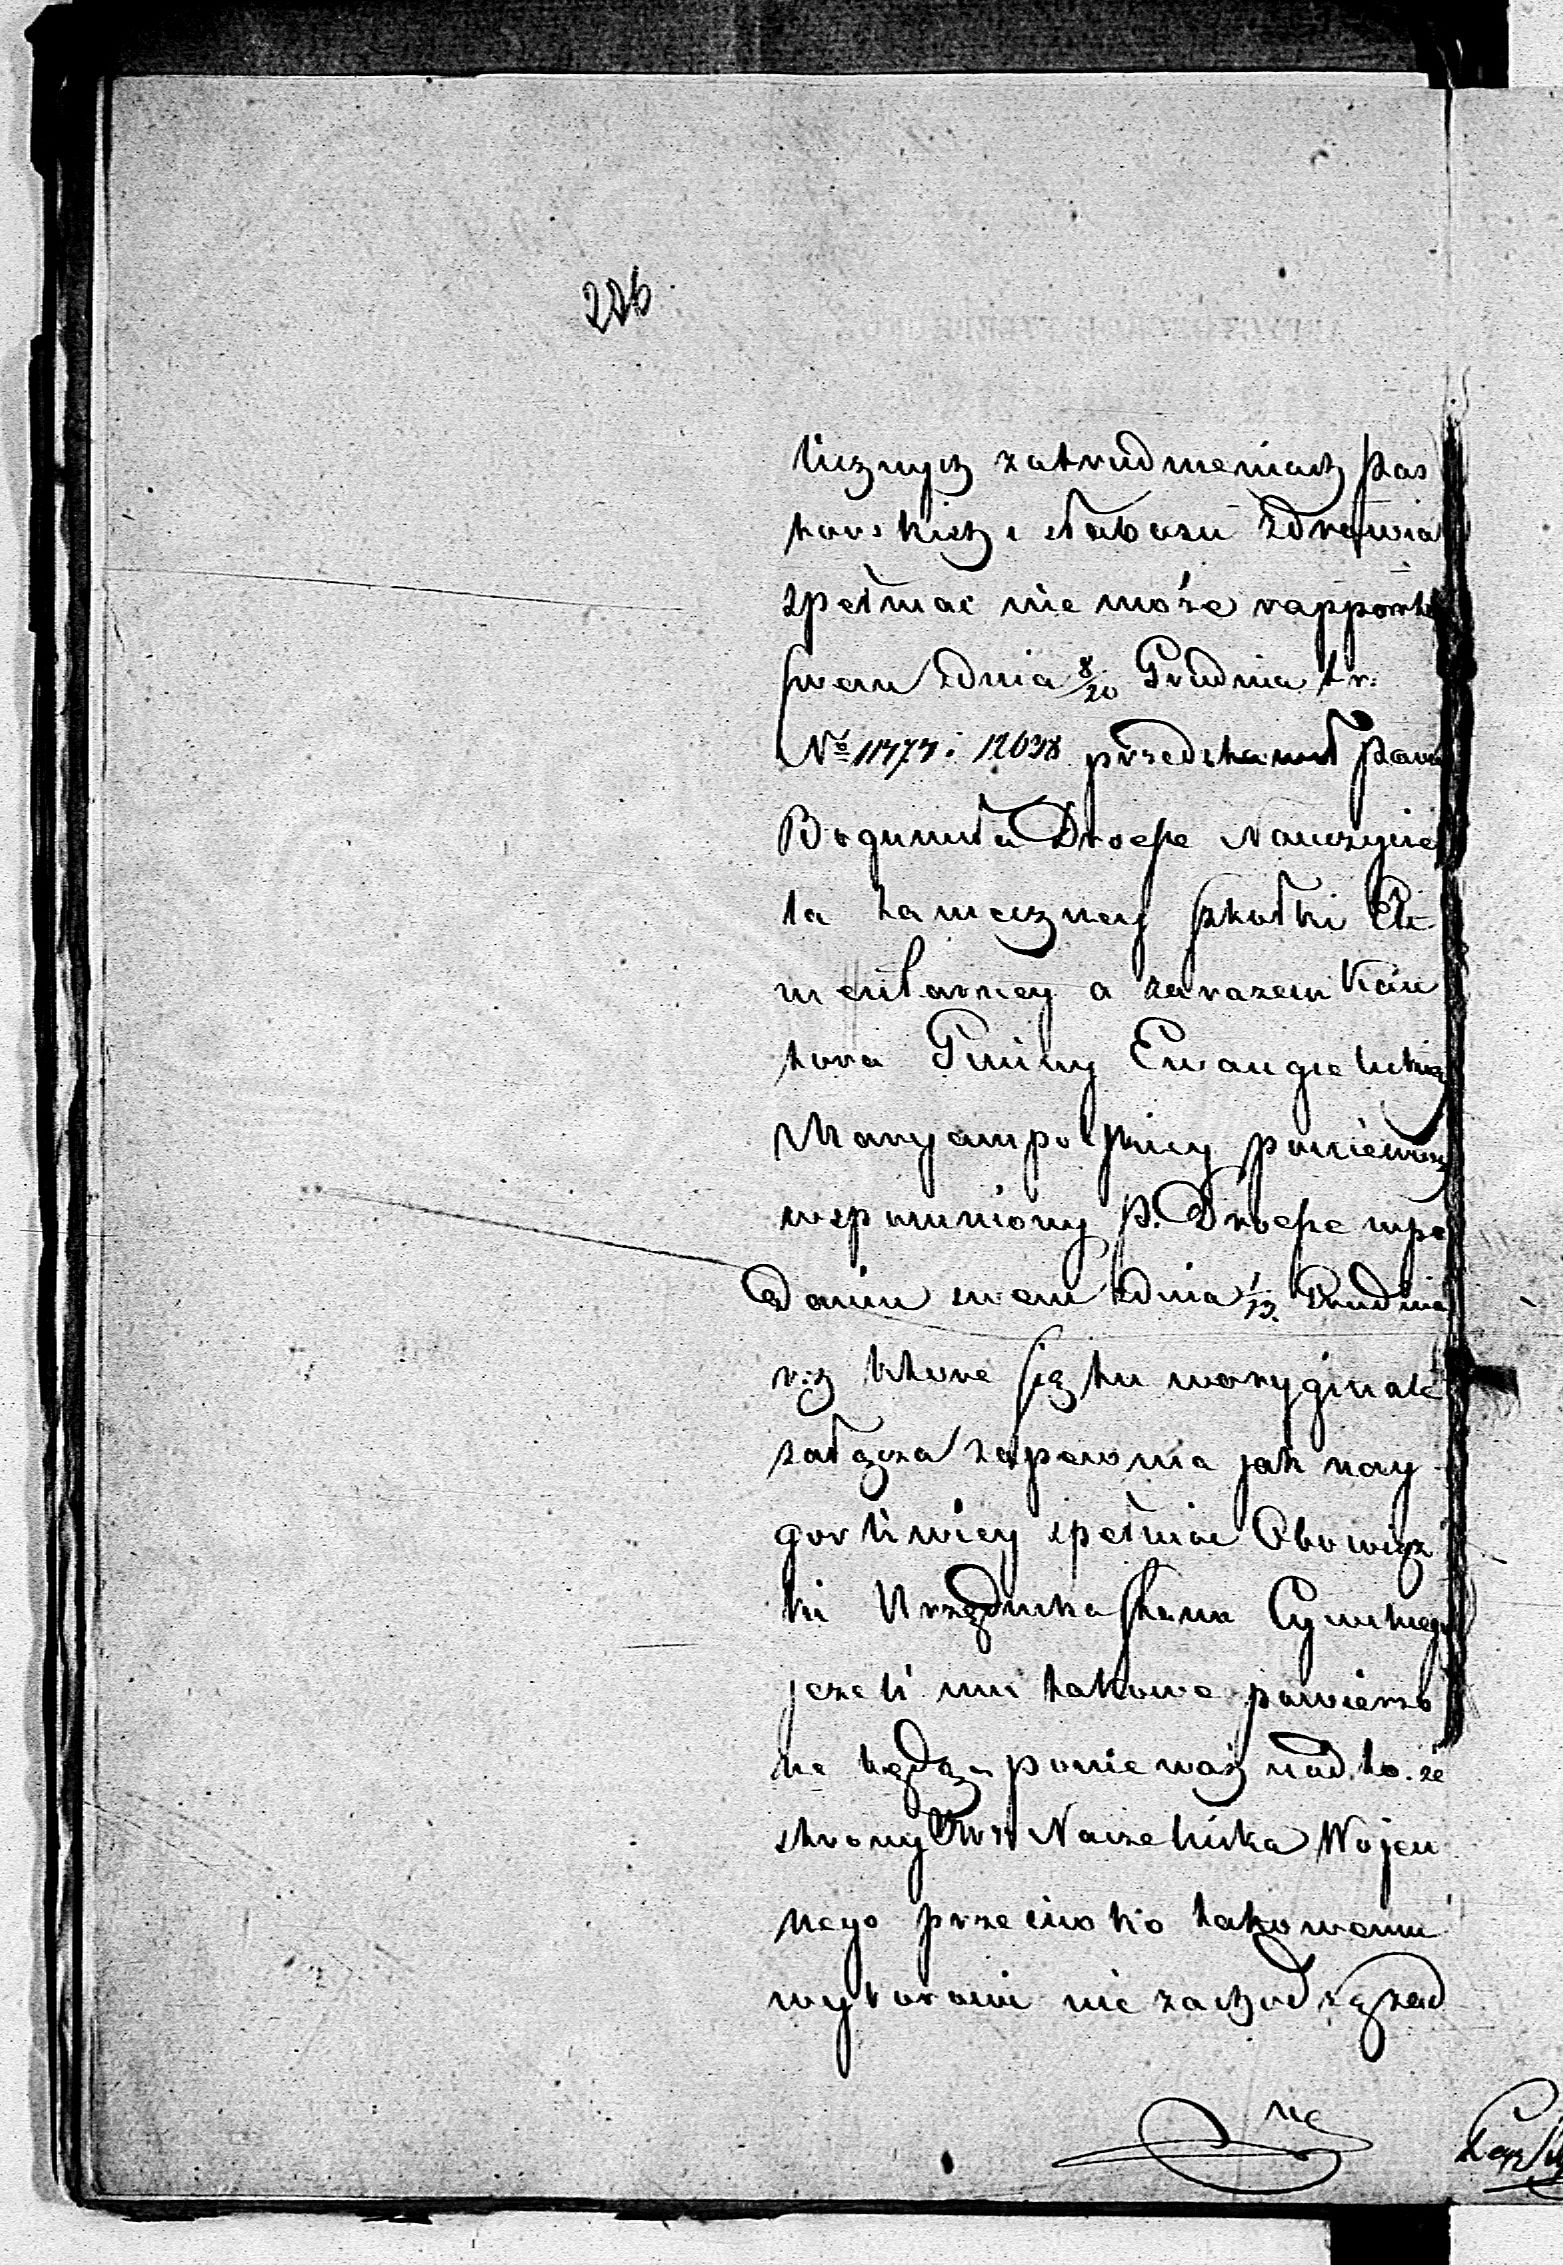 226
licznych zatrudnieniach pas
torskich i słabości zdrowia
spełniać nie może rapportem
swem z dnia 8/20 Grudnia t. r.
No 11773: 12638 przedstawił pana
Bogumiła Droese Nauczycie
la tamecznej szkółki Ele
mentarnej a zarazem Kan
tora Gminy Ewangielickiej
Maryampolskiej ponieważ
wspomniony p. Droese w po
daniu swem z dnia 1/13 Grudnia
r. z. które się tu w oryginale
załącza zapewnia jak nay
gorliwiey spełniać Obowiąz
ki Urzędnika Stanu Cywilnego
jeżeli mu takowe powierzo
ne będą, ponieważ nadto ze
strony Naczelnika Wojen
nego przeciwko takowemu
wyborowi nie zachodzą żad
ne